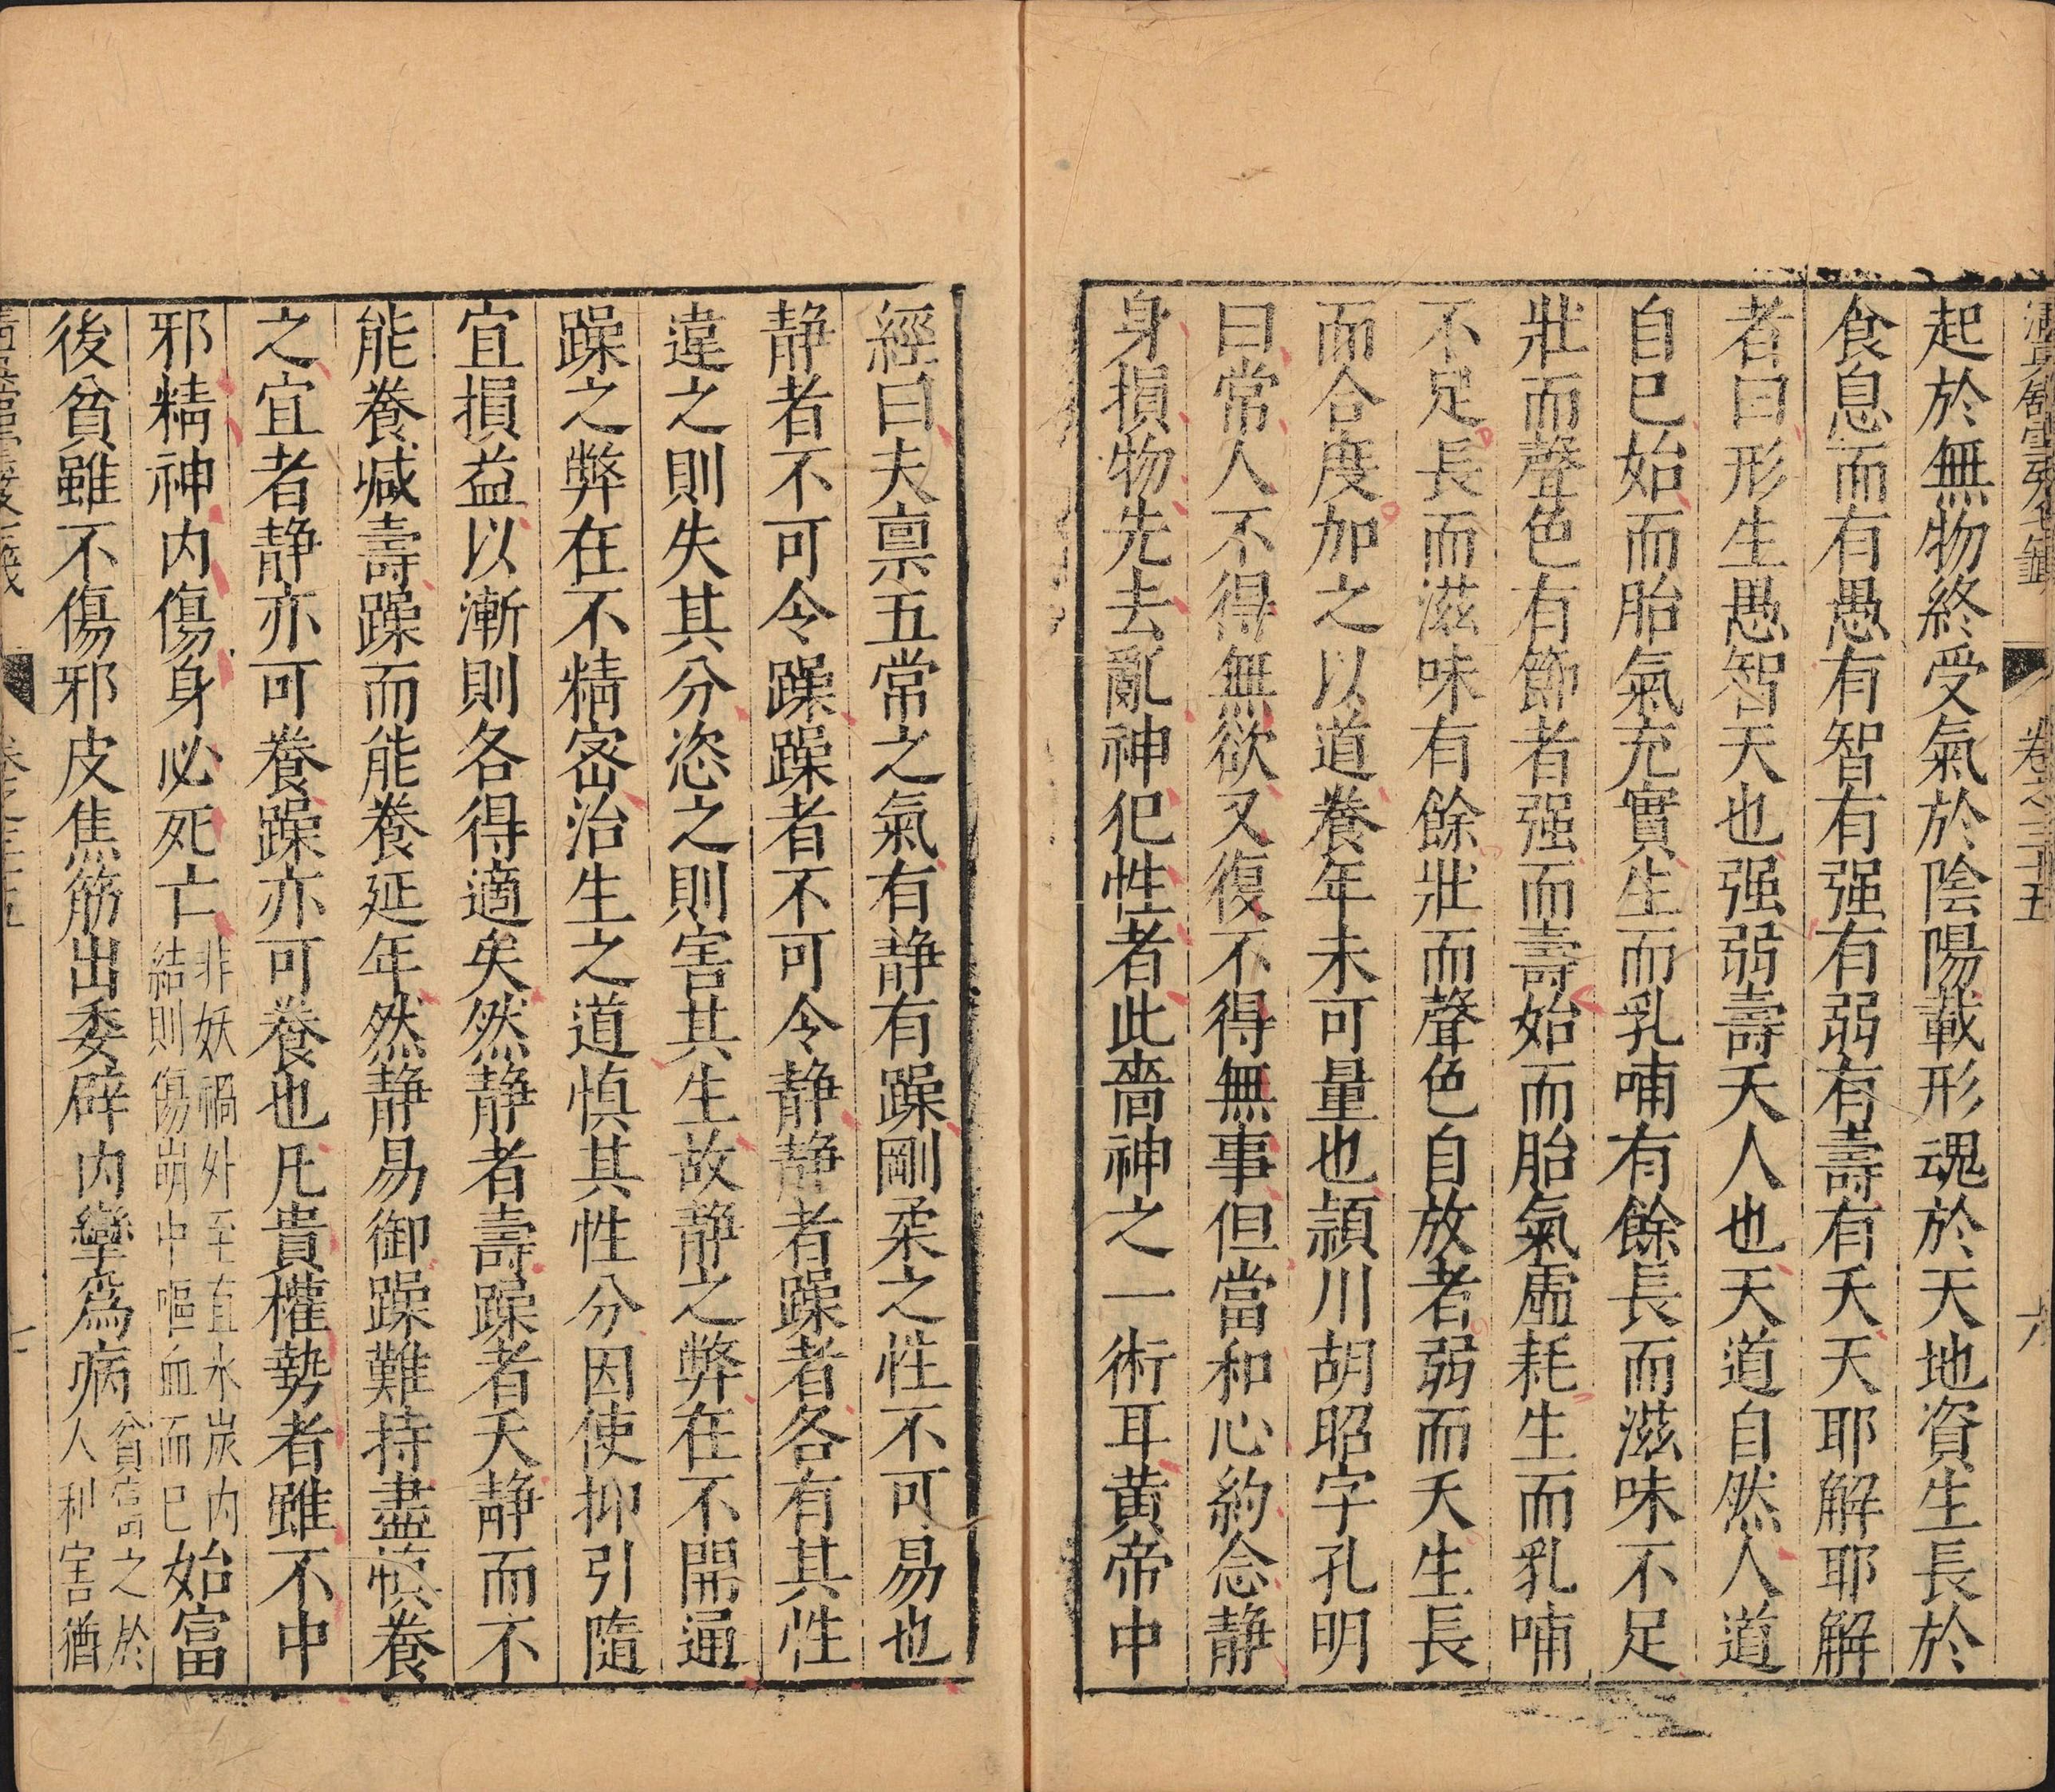 卷之三十五
六
起於無物終受氣於陰陽載形魂於天地資生長於
食息而有愚有智有强有弱有壽有夭天耶解耶解
者曰形生愚智天也强弱壽夭人也天道自然人道
自巳始而胎氣充實生而乳哺有餘長而滋味不足
壯而聲色有節者强而壽始而胎氣虛耗生而乳哺
不足長而滋味有餘壯而聲色自放者弱而夭生長
而合度加之以道養年未可量也頴川胡昭字孔明
曰常人不得無欲又復不得無事但當和心約念静
身損物先去亂神犯性者此嗇神之一術耳黄帝中
經曰夫禀五常之氣有静有躁剛柔之性不可易也
静者不可令躁躁者不可令静静者躁者各有其性
違之則失其分恣之則害其生故静之弊在不開通
躁之弊在不精宻治生之道慎其性分因使抑引隨
宜損益以漸則各得適矣然静者壽躁者夭静而不
能養减壽躁而能養延年然静易御躁難持盡慎養
之宜者静亦可養躁亦可養也凡貴權勢者雖不中
邪精神内傷身必死亡非妖禍外至直氷炭内
結則傷崩中嘔血而巳始富
後貧雖不傷邪皮焦筋出委辟内攣爲病貧富之於
人利害猶
七